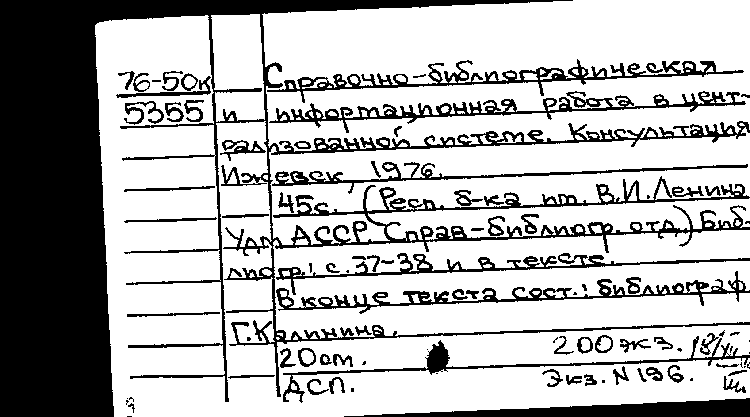 76-50к Справочно-библиографическая
5355 и информационная работа в цент-
рализованной системе. Консультация
Ижевск, 1976.
45с. (Респ. б-ка им. В.И.Ленина
Удм АССР. Справ-библиогр. отд.) Биб-
лиогр.: с.37-38 и в тексте.
В конце текста сост.: библиограф
Г.Калинина.
20см. 200 экз.
ДСП. Экз. N 196.